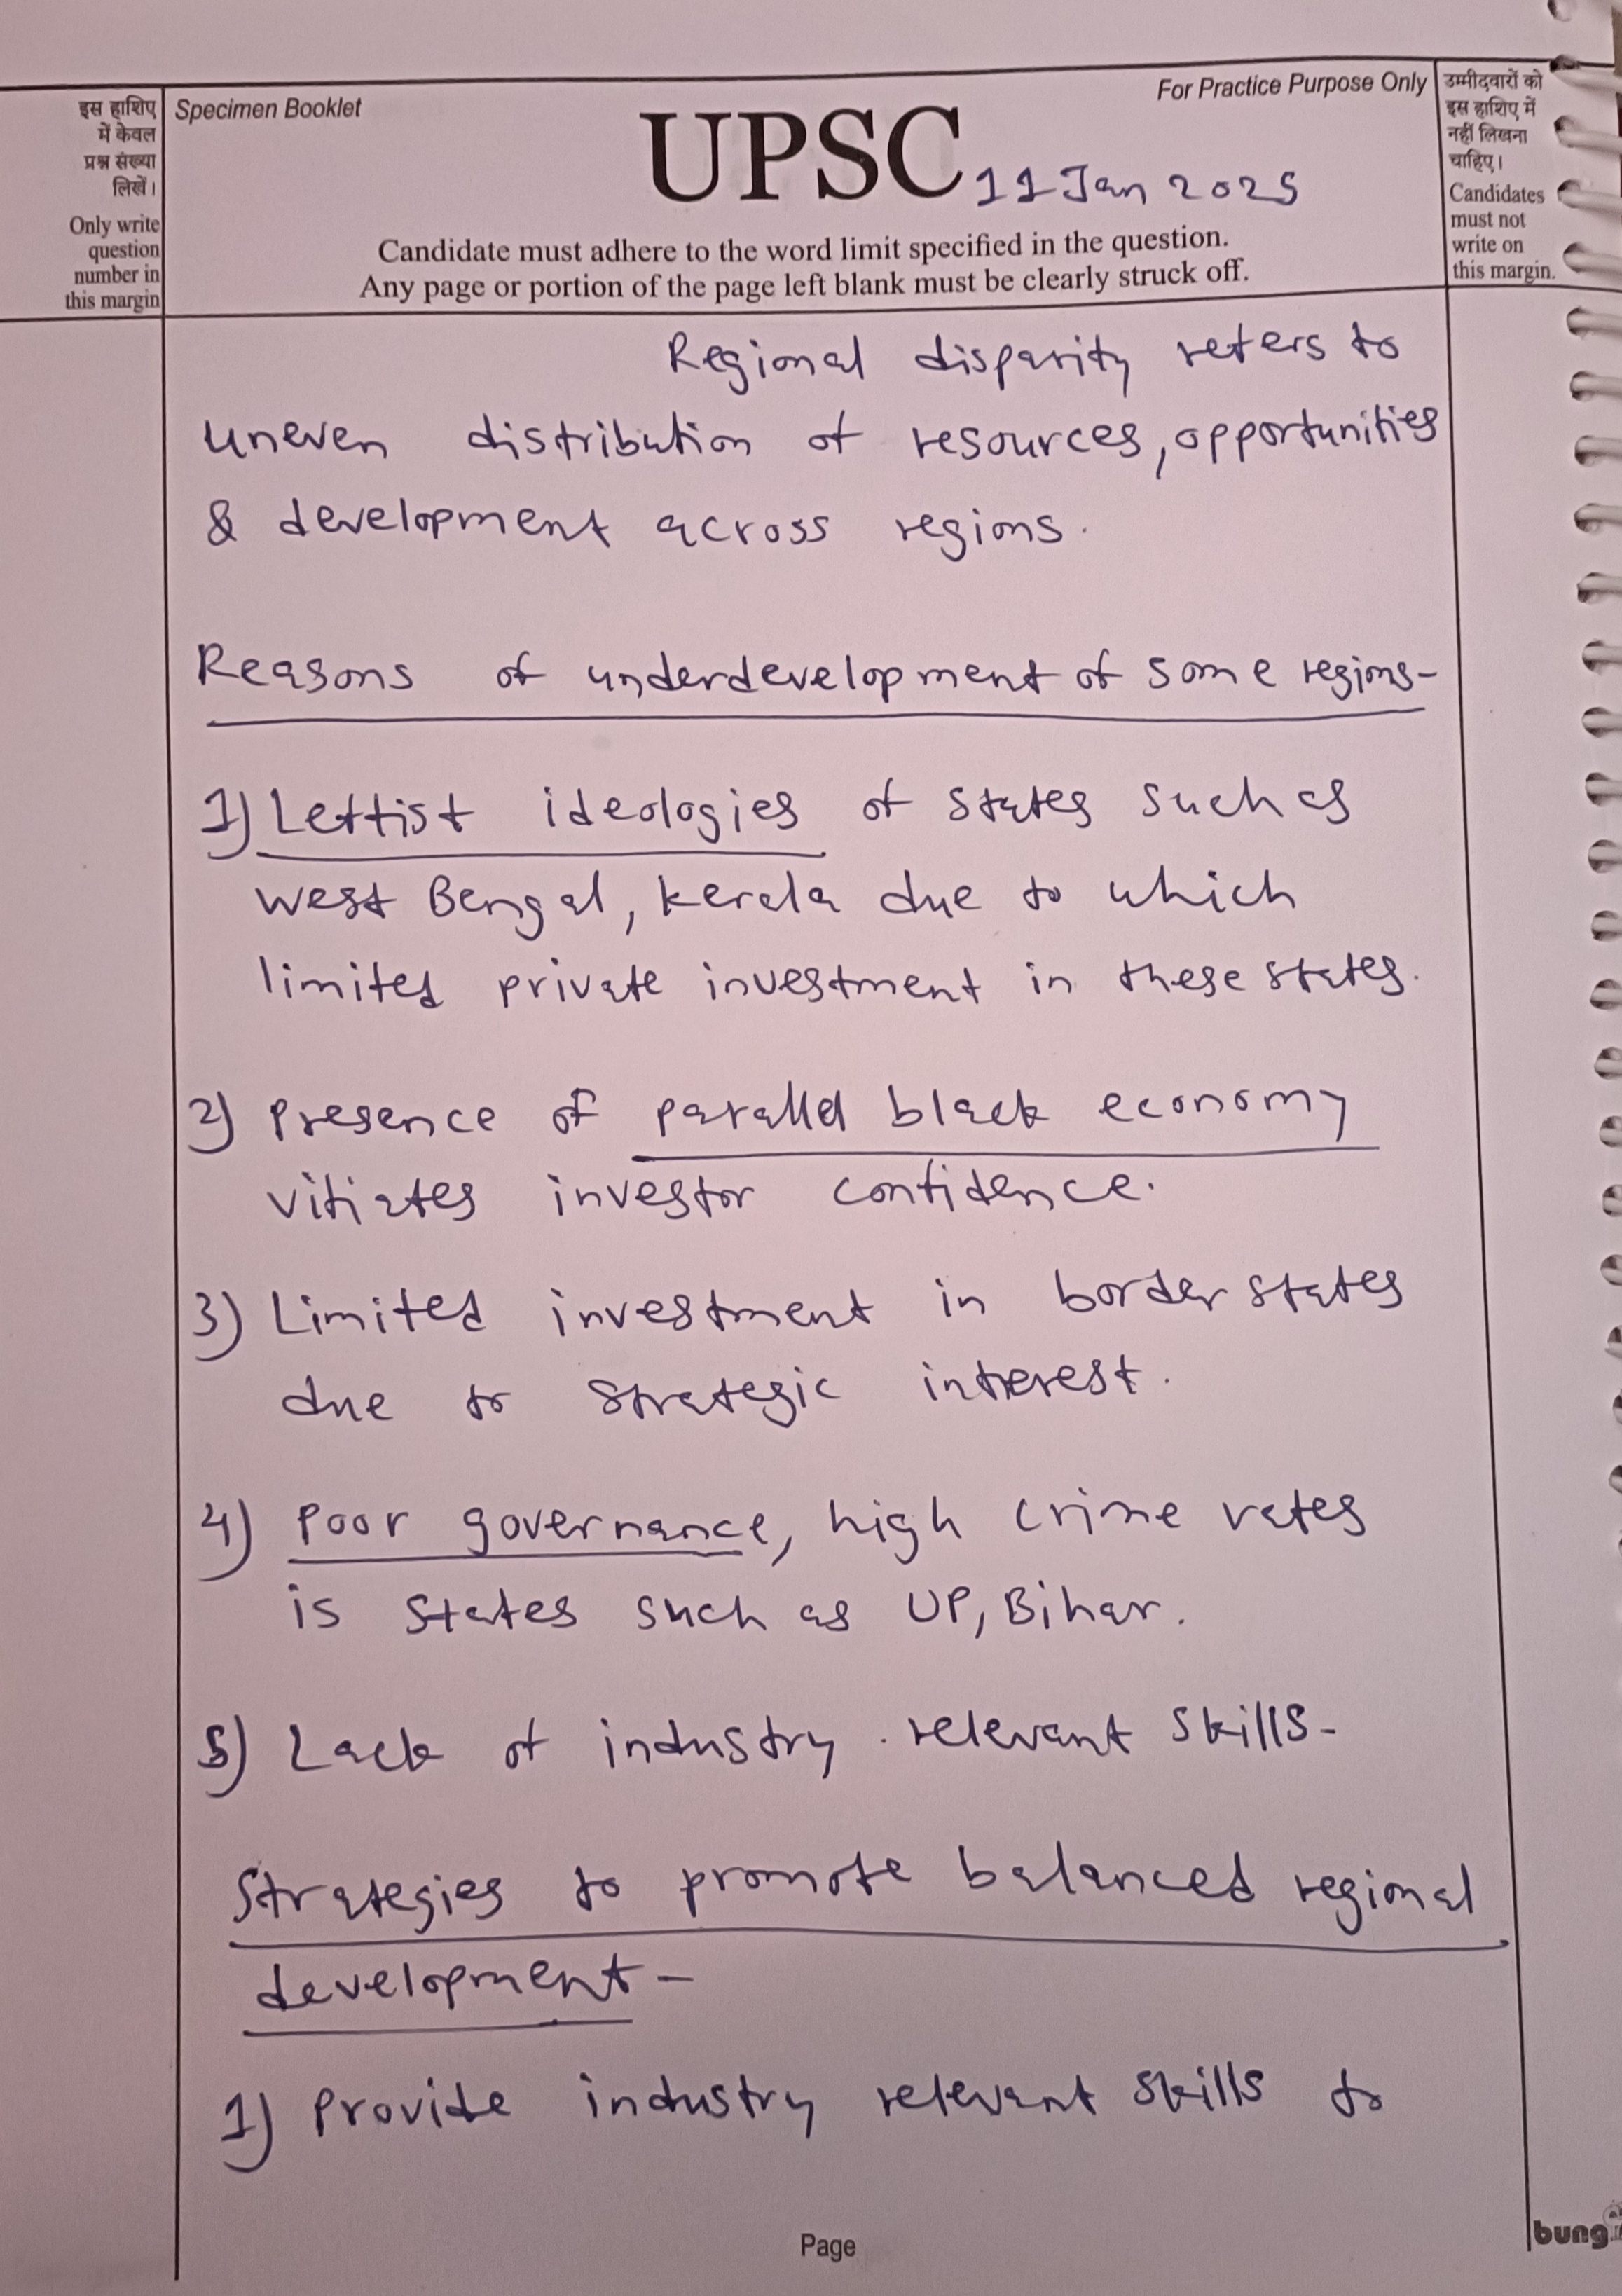 इस हाशिए
में केवल
प्रश्न संख्या
लिखें।
Only write
question
number in
this margin
Specimen Booklet
For Practice Purpose Only
UPSC
11 Jan 2025
Candidate must adhere to the word limit specified in the question.
Any page or portion of the page left blank must be clearly struck off.
उम्मीदवारों को
इस हाशिए में
नहीं लिखना
चाहिए।
Candidates
must not
write on
this margin.
Regional disparity refers to
uneven distribution of resources, opportunities
& development across regions.
Reasons of underdevelopment of some regions-
1) Leftist ideologies of states such as
West Bengal, Kerala due to which
limited private investment in these states.
2) Presence of parallel black economy
vitiates investor confidence.
3) Limited investment in border states
due to strategic interest.
4) Poor governance, high crime rates
is states such as UP, Bihar.
5) Lack of industry relevant skills-
Strategies to promote balanced regional
development-
1) Provide industry relevant skills to
Page